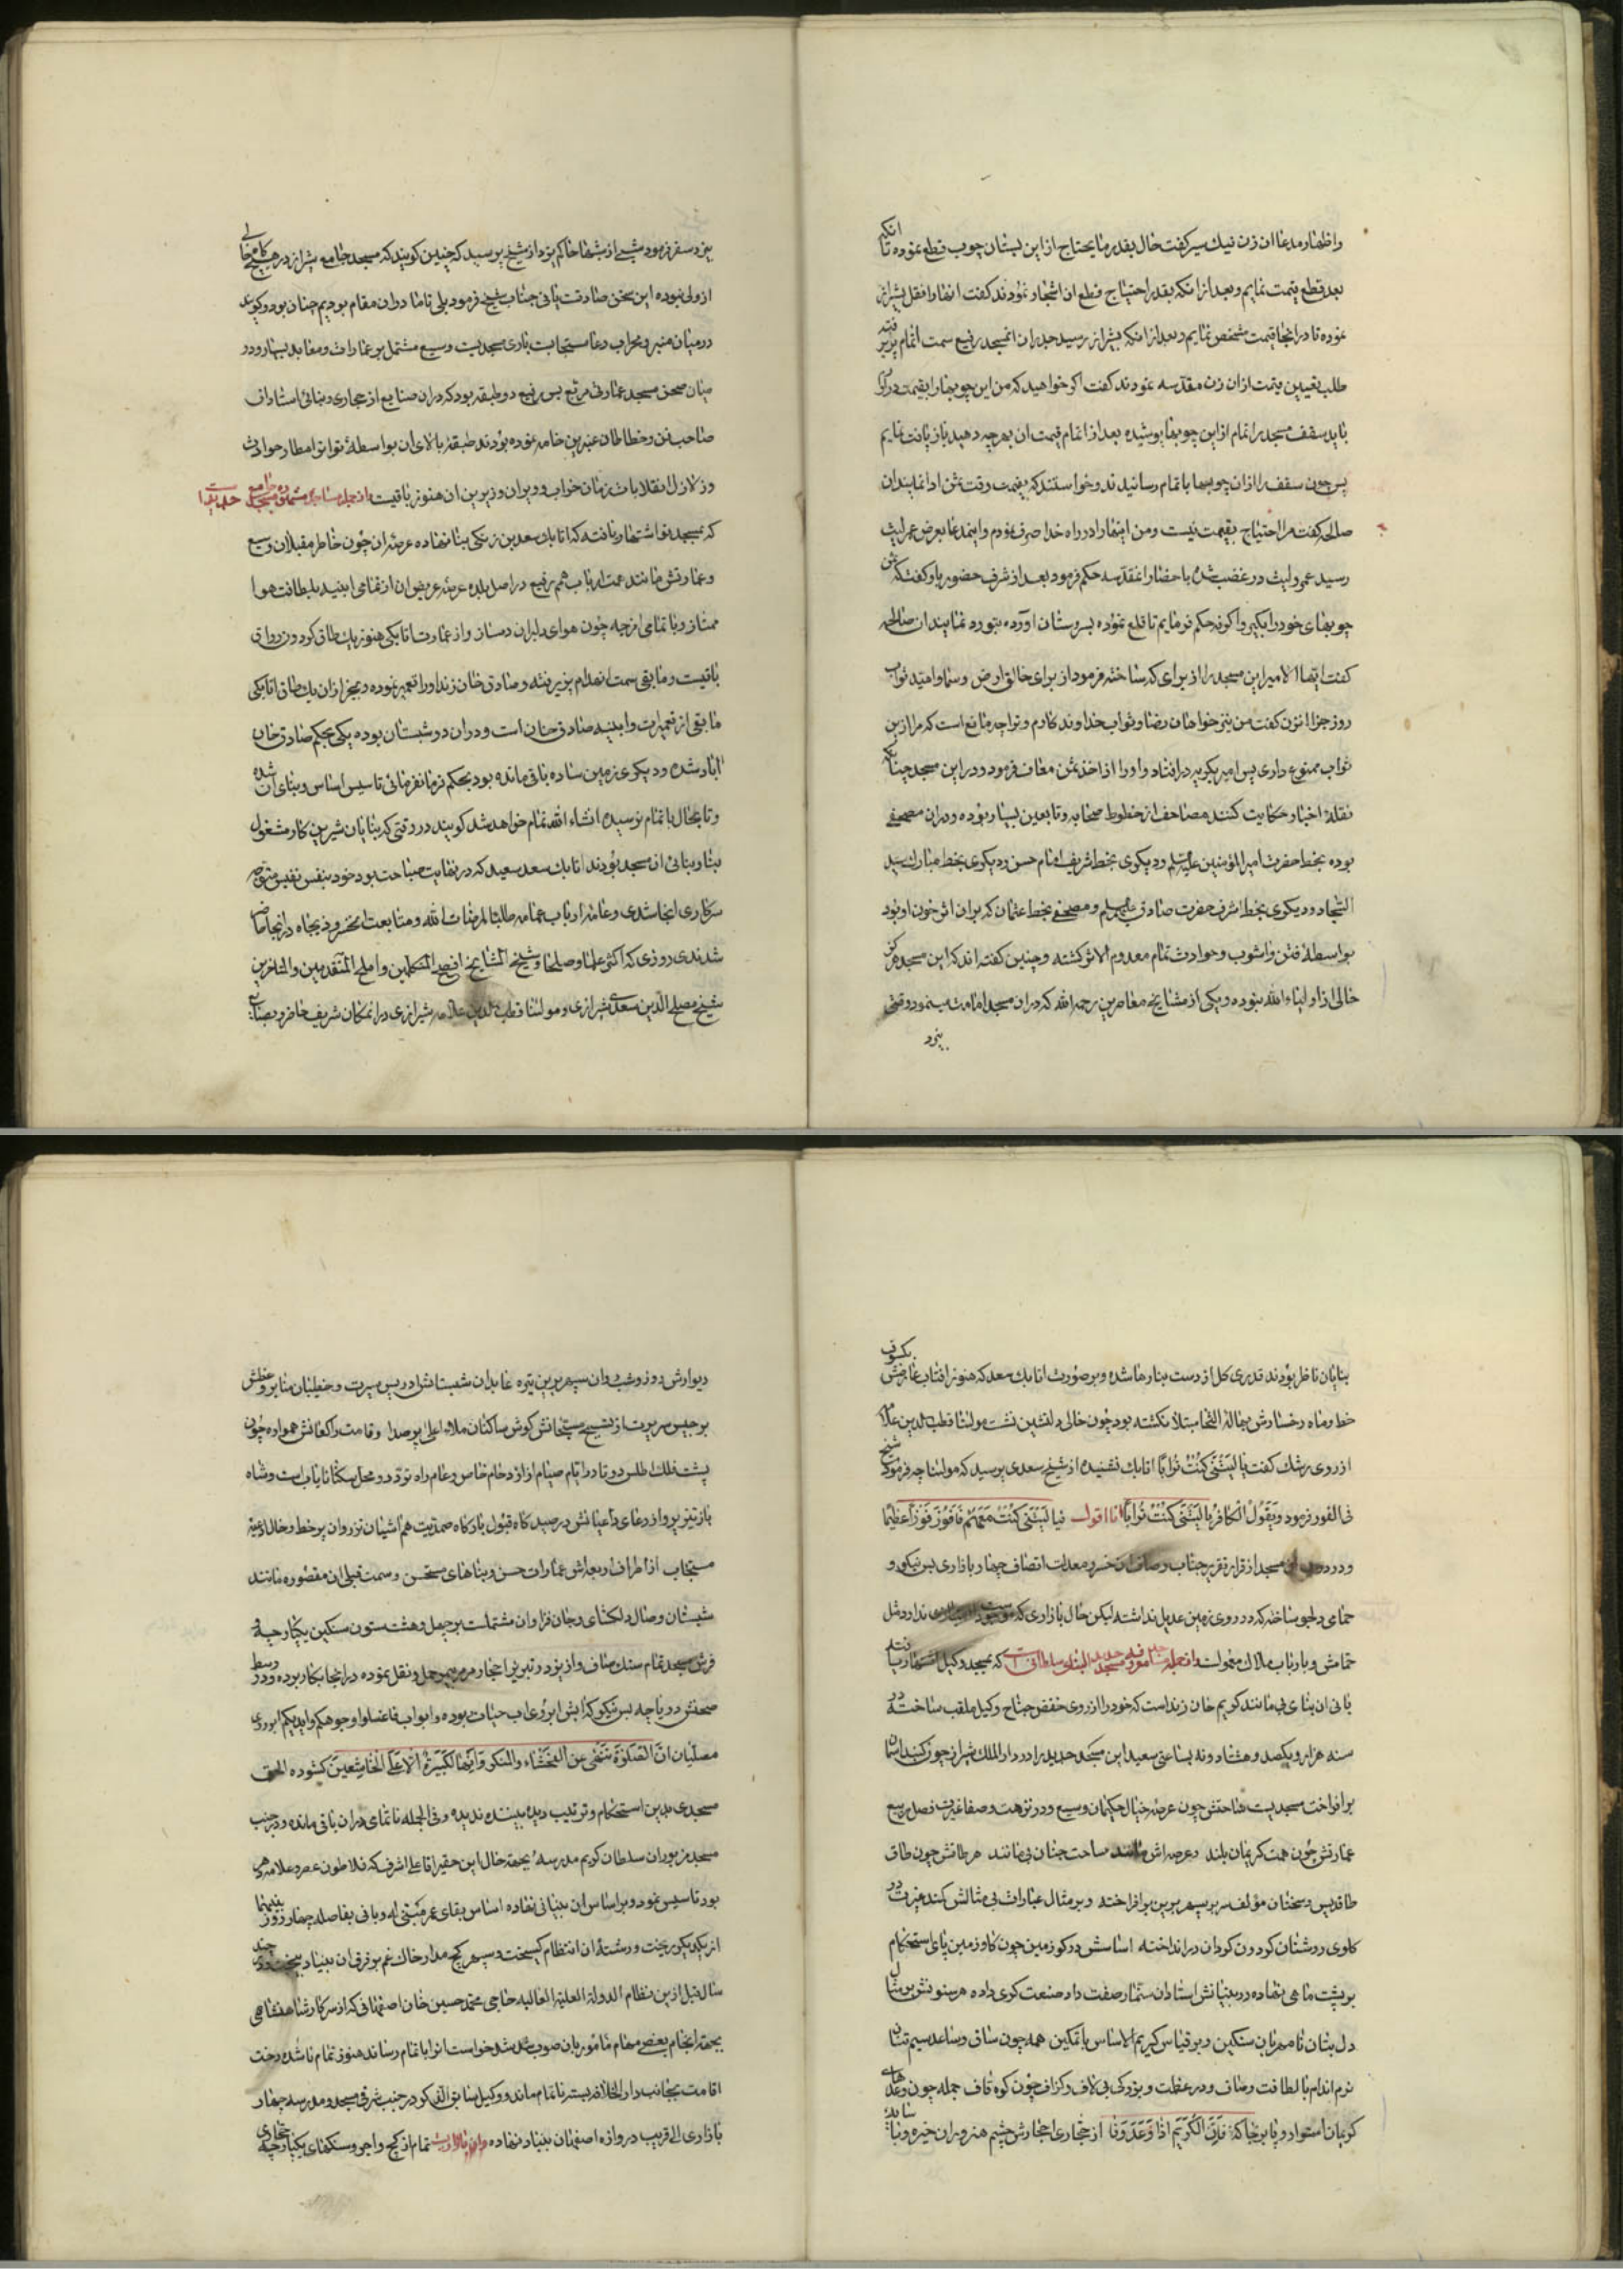 واظهار مدعا ان زن نیك سیر گفت حال بقدر مایحتاج از این بستان چوب قطع نموده تا انکه
بعد قطع قیمت نمایم و بعد از انکه بقدر احتیاج قطع ان اشجار نمودند گفت انها را نقل بشیراز
نموده تا در انجا قیمت مشخص نمایم و بعد از انکه بشیراز رسید جدران انمسجد رفیع سمت اتمام پذیرفته
طلب تعیین قیمت ازان زن مقدسه نمودند گفت اکر خواهید که من این چوبها را بقیمت
باید سقف مسجد را تمام از این چوبها پوشیده بعد از اتمام قیمت ان بهر چه دهید باز یافت نمایم
پس چون سقف را ازان چوبها باتمام رسانیدند وخواستند که بقیمت وقت ثمن ادا نمایند ان
صالحه گفت مرا احتیاج بقیمت نیست ومن اینها را در راه خدا صرف نمودم واینمدعا بعرض عمرلیث
رسید عمرولیث در غضب شده باحضار انمقدسه حکم فرمود بعد از شرف حضور باو گفت که ثمن
چوبهای خود را بکیر واکرنه حکم فرمایم تا قلع نموده بسروستان آورده بتو رد نمایند ان صالحه
گفت ایها الامیر این مسجد را از برای که ساخته فرمود از برای خالق ارض وسما وامید ثواب
روز جزا انزن گفت من نیز خواهان رضا وثواب خداوند کارم وترا چه مانع است که مرا ازین
ثواب ممنوع داری پس امیر بکریه در افتاد واو را از اخذ ثمن معاف فرمود ودر این مسجد چنانکه
نقلهٔ اخبار حکایت کنند مصاحف از خطوط صحابه وتابعین بسیار بوده ودران مصحفی
بوده بخط حضرت امیرالمؤمنین علیه‌السلم ودیکری بخط شریف امام حسن ودیکری بخط مبارك سید
السجاد ودیکری بخط اشرف حضرت صادق علیهم‌السلم ومصحفی بخط عثمان که بران اثر خون او بود
بواسطهٔ فتن واشوب وحوادث تمام معدوم الاثر کشته وچنین گفته اند که این مسجد هرکز
خالی از اولیاء الله نبوده ویکی از مشایخ معاصرین رحمه الله که دران مسجد امامت مینمود وقتی
بیزد
بیزد سفر فرمود شبی از شبها حاکم یزد از شیخ پرسید که چنین کویند که مسجد جامع شیراز در هیچ کاه خالی
از ولی نبوده این سخن صادقت یا نی جناب شیخ فرمود بلی تا ما دران مقام بودیم چنان بود وکویند
در میان منبر ومحراب دعا مستجابست باری مسجدیست وسیع مشتمل بر عمارات ومعابد بسیار ودر
میان صحن مسجد عمارتی مربع بس رفیع دو طبقه بود که دران صنایع از حجاری وبنائی استادان
صاحب فن وخطاطان عنبرین خامه نموده بودند طبقهٔ بالای ان بواسطهٔ تواتر امطار حوادث
وزلازل انقلابات زمان خراب وویران وزیرین ان هنوز باقیست از جمله مساجد
که بمسجد نو اشتهار یافته که اتابك سعد بن زنکی بنا نهاده عرصه ان چون خاطر مقبلان وسیع
وعمارتش مانند همت ارباب همم رفیع در اصل بلده عرصهٔ عریض ان از تمامی ابنیه بلطافت هوا
ممتاز وبا تمامی ازچه چون هوای دلبران دمساز واز عمارت اتابکی هنوز یك طاق کردون رواق
باقیست ومابقی سمت انهدام پذیرفته وصادق خان زند او را تعمیر نموده وبجز ازان یك طاق اتابکی
مابقی از تعمیرات وابنیه صادق خان است ودران دو شبستان بوده یکی بحکم صادق خان
اباد شده ودیکری زمین ساده باقی مانده بود بحکم فرمانفرمائی تاسیس اساس وبنای ان شده
وتا بحال باتمام نرسیده انشاء الله تمام خواهد شد کویند در وقتی که بنایان شیرین کار مشغول
بنا وبنائی ان مسجد بودند اتابك سعد سعید که در نهایت صباحت بود خود بنفس نفیس متوجه
سرکاری انجا شدی وعامهٔ ارباب عمامه طلبًا لمرضات الله ومتابعت انخسرو ذیجاه در انجا حاضر
شدندی روزی که اکثر علما وصلحا وشیخ المشایخ افصح المتکلمین واملح المتقدمین والمتاخرین
شیخ مصلح‌الدین سعدی شیرازی ومولنا قطب‌الدین علامه شیرازی در انمکان شریف حاضر وبصنایع
بنایان ناظر بودند قدری کل از دست بنا رها شده وبر صورت اتابك سعد که هنوز افتاب عارضش بکسوف
خط وماه رخسارش بهالهٔ التحا مبتلا نکشته بود چون خالی دلنشین نشست مولنا قطب‌الدین علامه
از روی رشك گفت یا لیتنی کنت ترابًا اتابك نشنیده از شیخ سعدی پرسید که مولنا چه فرمود شیخ
فی الفور فرمود ویقول الکافر یا لیتنی کنت ترابًا انا اقول فیا لیتنی کنت معهم فافوز فوزًا عظیمًا
ودر دور ان مسجد از قرار تقریر جناب وصاف ان خسرو معدلت اتصاف چهار بازاری بس نیکو و
حمامی دلجو ساخته که در روی زمین عدیل نداشته لیکن حال بازاری که ندارد ومثل
حمامش وبارباب ملاك منحولست واز جمله مسجد که بمسجد وکیل اشتهار یافته
بانی ان بنای بی مانند کریم خان زند است که خود را از روی خفض جناح وکیل ملقب ساخته در
سنه هزار ویکصد وهشتاد ونه بساعتی سعید این مسجد جدید را در دارالملك شیراز چون کنبد اسمان
بر افراخت مسجدیست ساحتش چون عرصهٔ خیال حکیمان وسیع ودر نزهت وصفا غیرت فصل ربیع
عمارتش چون همت کریمان بلند وعرصه اش مانند ساحت جنان بی مانند هر طاقش چون طاق
طاقدیس وسخنان مؤلف سر بر سپهر برین بر افراخته وبر مثال عبارات بی مثالش کمند غیرت در
کلوی روشنان کردون کردان در انداخته اساسش در کو زمین چون کاو زمین پای استحکام
بر پشت ماهی نهاده ودر بنیانش استادان سنمار صفت داد صنعت کری داده هر ستونش بر مثال
دل بتان نامهربان سنکین وبر قیاس کریم الاساس باتمکین همه چون ساق وساعد سیم تنان
نرم اندام بالطافت وصاف ودر عظمت وبزرکی بی لاف وکزاف چون کوه قاف جمله چون وعدهای
کریمان استوار وپا برجا که فان الکریم اذا وعد وفا از حجاری احجارش چشم هنروران خیره وبیاض
دیوارش روز وشب وان سپهر برین تیره عابدان شبستانش ادریس سیرت وخطیبان منابر وعظش
برجیس سریرت از تسبیح مسبحانش کوش ساکنان ملاء اعلی پر صدا وقامت راکعانش همواره چون
پشت فلك اطلس دوتا در ایام صیام از ازدحام خاص وعام راه تردد ومحل سکنا نایاب است وشاه
باز تیز پرواز دعای داعیانش در صید کاه قبول بارکاه صمدیت هم اشیان تذروان پر خط وخال ادعیه
مستجاب از اطراف اربعه اش عمارات حسن وبناهای مستحسن وسمت قبلی ان مقصوره مانند
شبستان وصال دلکشای وجان فزا وان مشتملست بر چهل وهشت ستون سنکین یکپارچه
فرش مسجد تمام سنك صاف واز یزد وتبریز احجار مرمر حمل ونقل نموده در انجا بکار برده ودر وسط
صحنش دریاچه بس نیکو که ابش ابروی اب حیات بوده وابواب فاغسلوا وجوهکم وایدیکم بر روی
مصلیان ان الصلوة تنهی عن الفحشاء والمنکر وانها لکبیرة الا علی الخاشعین کشوده الحق
مسجدی بدین استحکام وترتیب دیده بیننده ندیده وفی الجمله ناتمامی دران باقی مانده ودر جنب
مسجد مزبور ان سلطان کریم مدرسهٔ بجهة خال این حقیر اقا علی اشرف که فلاطون عصر وعلامه دهر
بود تاسیس نمود وبر اساس ان بنیانی نهاده اساس بقای عمر مبتنی له وبانی بفاصله چهار روز
از یکدیکر ریخت ورشتهٔ ان انتظام کسیخت وسپهر کج مدار خاك غم بر فرق ان بنیاد بیخت ودر چند
سال قبل ازین نظام الدولة العلیة العالیه حاجی محمد حسین خان اصفهانی که از سرکار شاهنشاهی
بجهة انجام بعضی مهام مامور بان صوب شده بود خواست انرا باتمام رساند هنوز تمام نا شده رخت
اقامت بجانب دار الخلافه بسته ناتمام ماند ووکیل سابق الذکر در جنب شرقی مسجد ومدرسه چهار
بازاری الی قریب دروازه اصفهان بنیاد نهاده تمام از کچ واجر وسنکهای یکپارچه حجاری